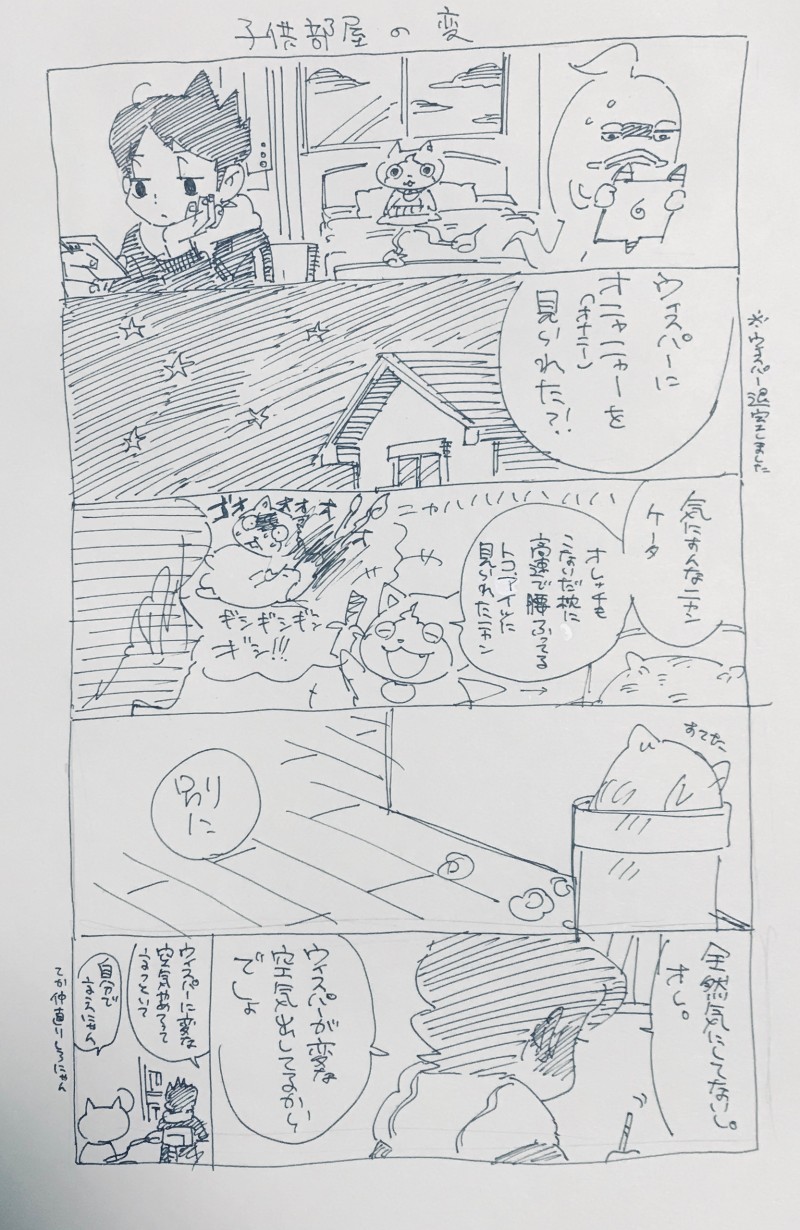 子供部屋の変
ウィスパーに
オニャニャーを
(オナニー)
見られた?!
※ウィスパー退室しました
気にすんなニャン
ケータ
オレっちも
こないだ枕に
高速で腰ふってる
トコ
見られたニャン
ニャハハハハハハ
ギシギシギシ
ギシ!!!
すてた
別り
に
全然気にしてないし。
さし。
ウィスパーが変な
空気出してるから
でしょ
ウィスパーに変な
空気やめてって
自分で
てか仲直りしろにゃん